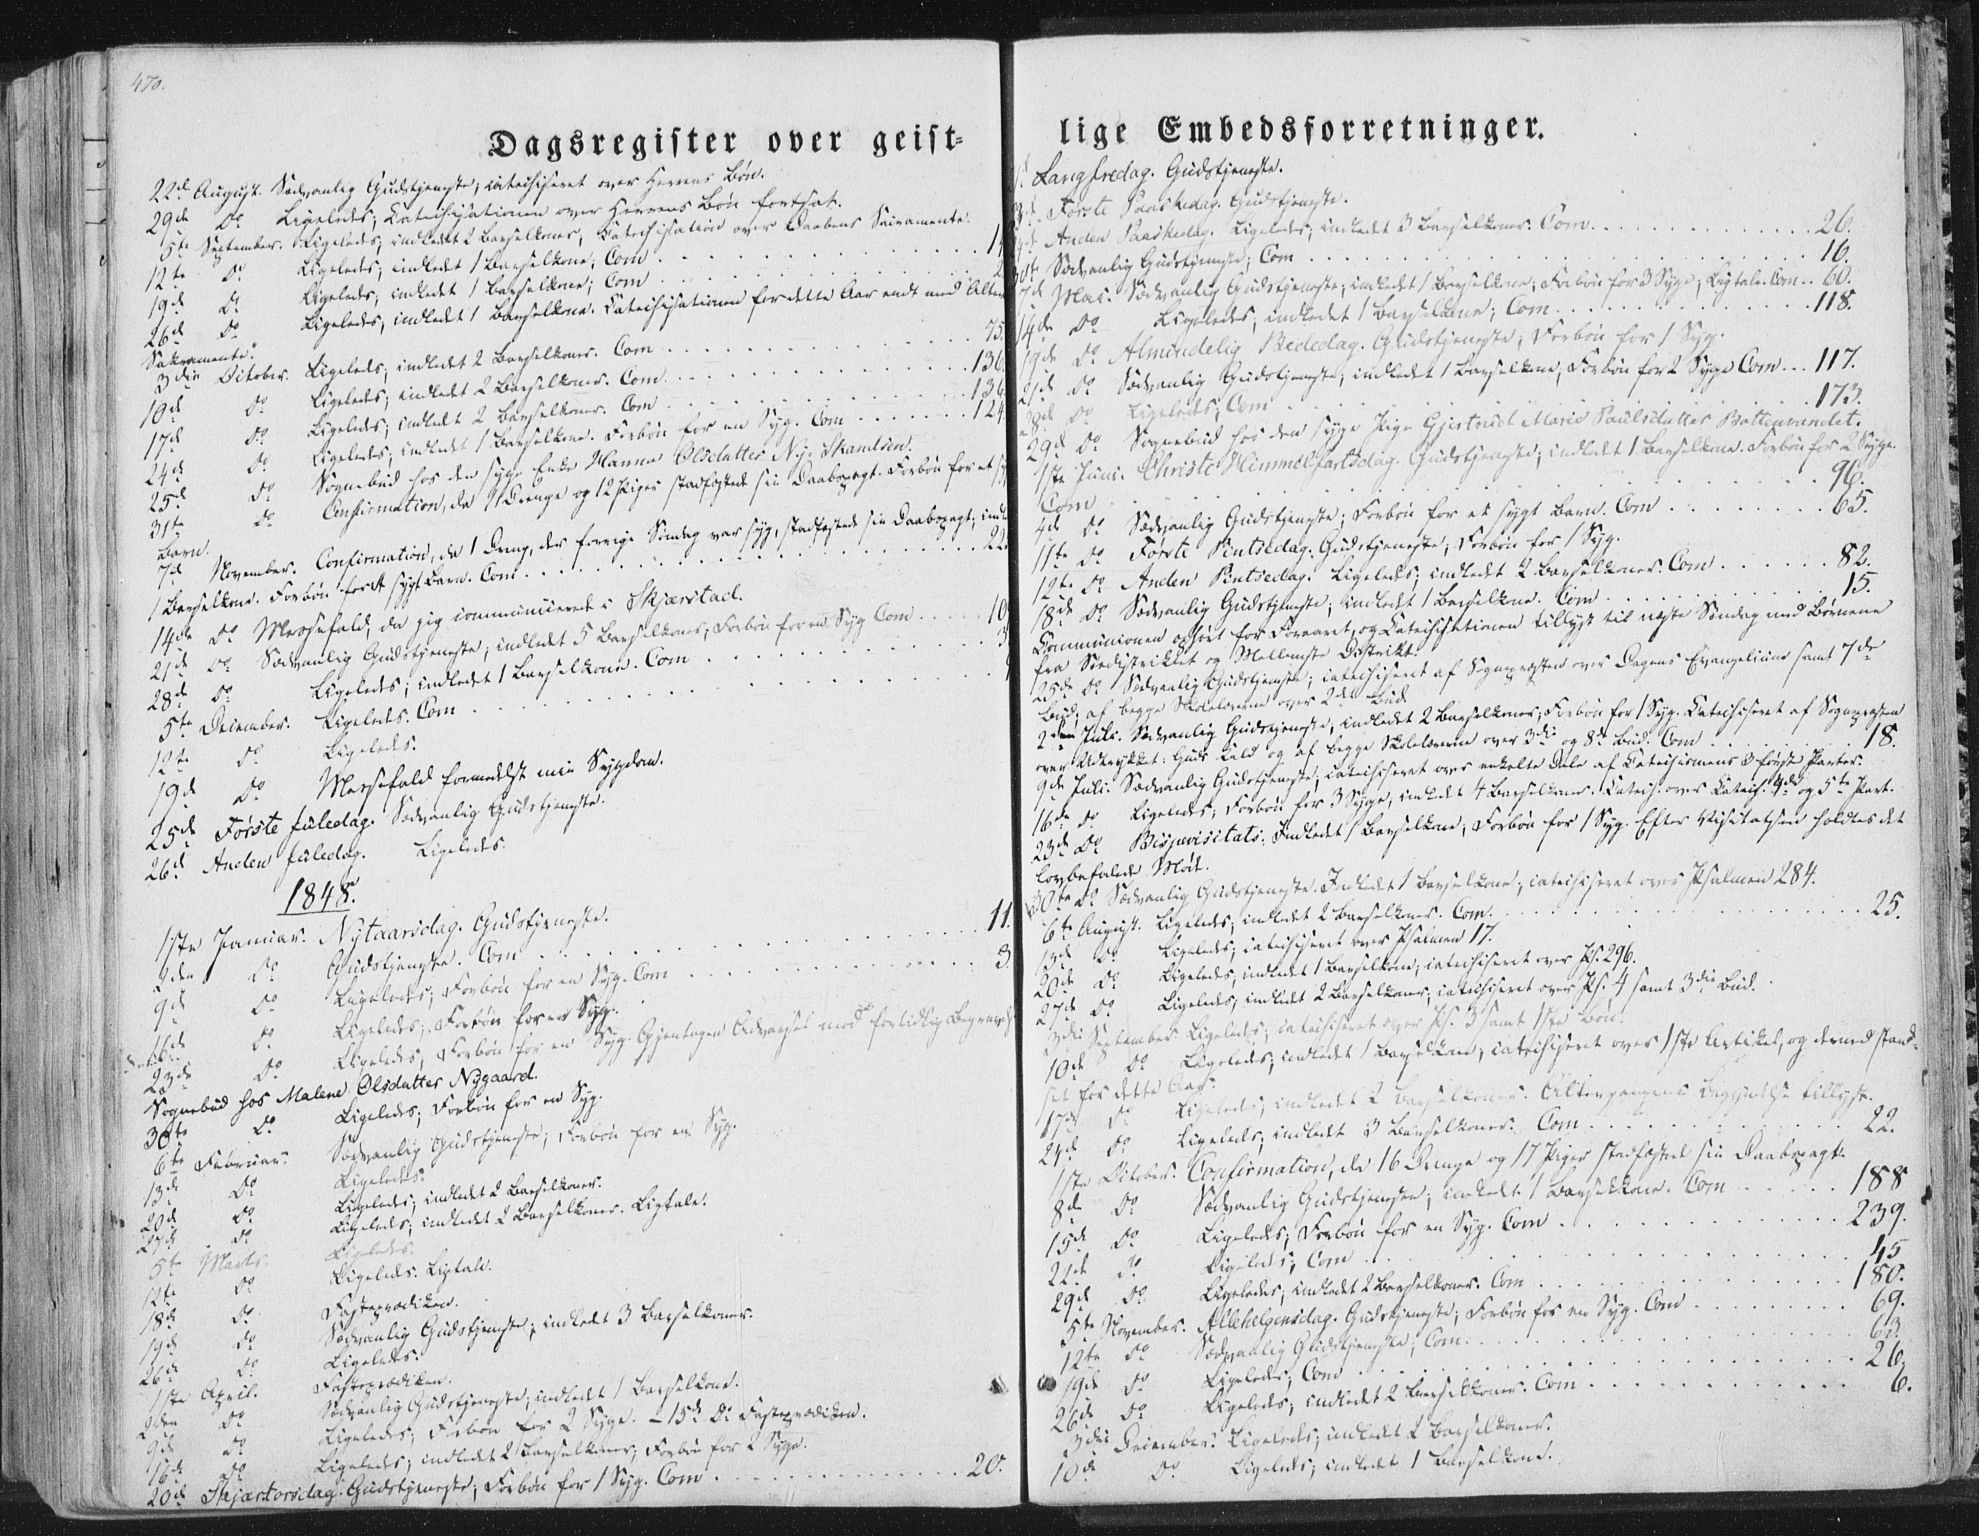 470.
Dagsregister over geist-
22d August. Sædvanlig Gudstjeneste; catechiseret over Herrens Bøn.
29de Do Ligeledes; Catechisationen over Herrens Bøn fortsat.
5te September. Ligeledes; indledet 2 Barselkoner; Catechisation over Daabens Sacramente.
12te Do Ligeledes; indledet 1 Barselkone; Com
19de Do Ligeledes; indledet 1 Barselkone; Com
26d Do Ligeledes, indledet 1 Barselkone. Catechisationen for dette Aar endt med Altens
Sakramente.
3die October. Ligeleds; indledet 2 Barselkoner. Com 75.
10d Do Ligeleds; indledet 2 Barselkoner. Com 136.
17d Do Ligeledes; indledet 2 Barselkoner. Com 136
24d Do Ligeleds; indledt 1 Barselkone. Forbøn for en Syg. Com 124
25d Do Sognebud hos den syge Enke Hanna Olsdatter Ny-Skandsen.
31te Do Confirmation, da Drenge og 12 Piger stadfæstede sin Daabspagt. Forbøn for et
Barn.
7d November. Confirmation, da 1 Dreng, der forrige Søndag var syg, stadfæstede sin Daabspagt;
1 Barselkone. Forbøn for et sygt Barn. Com
14de Do Messefald, da jeg communicerede i Skjærstad.
21d Do Sædvanlig Gudstjeneste; indledet 5 Barselkoner; Forbøn for en Syg Com
28de Do Ligeledes; indledet 1 Barselkone. Com
5te December. Ligeledes. Com
12te Do Ligeledes.
19d Do Messefald formedelst min Sygdom.
25de Første Juledag. Sædvanlig Gudstjeneste.
26d Anden Juledag. Ligeledes.
1848.
1ste Januar. Nytaarsdag. Gudstjeneste.
2den Do Gudstjeneste. Com 11.
9d Do Ligeledes; Forbøn for en Syg. Com 3
16d Do Ligeledes; Forbøn for en Syg.
23de Do Ligeledes; Forbøn for en Syg. Gjentagen Advarsel mod fortidlig Begravelse
Sognebud hos Malene Olsdatter Nygaard.
30te Do Ligeledes; Forbøn for en Syg.
6te Februar. Sædvanlig Gudstjeneste; Forbøn for en Syg.
13d Do Ligeledes.
20d Do Ligeledes; indledet 2 Barselkoner.
27de Do Ligeledes; indledet 2 Barselkoner. Ligtale.
5te Marts. Ligeledes.
12te Do Ligeledes. Ligtale.
18d Do Fasteprædiken.
19d Do Sædvanlig Gudstjeneste; indledet 3 Barselkoner.
26d Do Ligeledes.
1ste April. Fasteprædiken.
2den Do Sædvanlig Gudstjeneste; indledet 1 Barselkone.
9d Do Ligeledes; Forbøn for 2 Syge. - 15d Do Fasteprædiken.
16d Do Ligeledes; indledet 2 Barselkoner; Forbøn for 2 Syge.
20d Skjærtorsdag. Gudstjeneste; Forbøn for 1 Syg. Com 20.
lige Embedsforretninger.
Langfredag. Gudstjeneste.
Første Paaskedag. Gudstjeneste.
Anden Paaskedag. Ligeledes; indledet 3 Barselkoner. Com 26.
30te Sædvanlig Gudstjeneste; Com 16.
7d Mai. Sædvanlig Gudstjeneste; indledet 1 Barselkone; Forbøn for 3 Syge; Ligtale. Com 60.
14de Do Ligeledes, indledet 1 Barselkone; Com 118.
19de Do Almindelig Bededag. Gudstjeneste; Forbøn for 1 Syg.
21d Do Sædvanlig Gudstjeneste; indledet 1 Barselkone, Forbøn for 2 Syge Com 117.
28d Do Ligeledes; Com 173.
29d Do Sognebud hos den syge Pige Gjertrud Marie Paulsdatter Bottenvendet.
1ste Juni. Christi Himmelfartsdag. Gudstjeneste; indledet 1 Barselkone. Forbøn for 2 Syge.
Com 96.
4d Do Sædvanlig Gudstjeneste; Forbøn for et sygt Barn. Com 65.
11te Do Første Pintsedag. Gudstjeneste; Forbøn for 1 Syg.
12te Do Anden Pintsedag. Ligeledes; indledet 2 Barselkoner. Com 82.
18de Do Sædvanlig Gudstjeneste; indledet 1 Barselkone. Com 15.
Communionen ophørt for Foraaret, og Catechisationen tillyst til næste Søndag med Børnene
fra Sædistriktet og Mellemste Distrikt.
25de Do Sædvanlig Gudstjeneste; catechiseret af Sognepræsten over Dagens Evangelium samt 7de
Bud; af begge Skolelærerne over 2det Bud
2den Juli. Sædvanlig Gudstjeneste; indledet 2 Barselkoner; Forbøn for 1 Syg. Catechiseret af Sognepræsten
over Udtrykket: Guds og af begge Skolelærerne over 3die og 8de Bud. Com 18.
9de Juli. Sædvanlig Gudstjeneste; catechiseret over enkelte Dele af Catechismens 3 første Parter.
16de Do Ligeledes; Forbøn for 3 Syge, indledet 4 Barselkoner. Catech. over Catech. 4de og 5te Part.
23d Do Bispevisitats. Indledet 1 Barselkone; Forbøn for 1 Syg. Efter Visitatsen holdtes det
lovbefalede Møde.
30te Do Sædvanlig Gudstjeneste. Indledet 1 Barselkone; catechiseret over Psalmen 284.
6te August. Ligeledes; indledet 2 Barselkoner. Com. 25.
13d Do Ligeledes; catechiseret over Psalmen 17.
20de Do Ligeledes; indledet 1 Barselkone; catechiseret over Ps. 296.
27d Do Ligeledes; indledet 2 Barselkoner; catechiseret over Ps. 4 samt 3die Bud.
3die September. Ligeledes; catechiseret over Ps. 3 samt 1ste Bøn.
10d Do Ligeledes; indledet 1 Barselkone; catechiseret over 1ste Artikel, og dermed stand-
set for dette Aar.
17d Do Ligeledes; indledet 2 Barselkoner. Altergangens Begyndelse tillyst.
24d Do Ligeleds; indledet 3 Barselkoner. Com 22.
1ste October. Confirmation, da 16 Drenge og 17 Piger stadfæstede sin Daabspagt.
8d Do Sædvanlig Gudstjeneste; indledet 1 Barselkone. Com 188
15d Do Ligeledes; Forbøn for en Syg. Com 239.
22de Do Ligeledes; Com 45
29d Do Ligeledes; indledet 2 Barselkoner. Com 180.
5te November. Allehelgensdag. Gudstjeneste; Forbøn for en Syg. Com 69.
12te Do Sædvanlig Gudstjeneste; Com. 63.
19d Do Ligeledes; Com 26.
26d Do Ligeledes; indledet 2 Barselkoner. Com 6.
3die December. Ligeledes; indledet 2 Barselkoner.
10d Do Ligeledes; indledet 1 Barselkone.